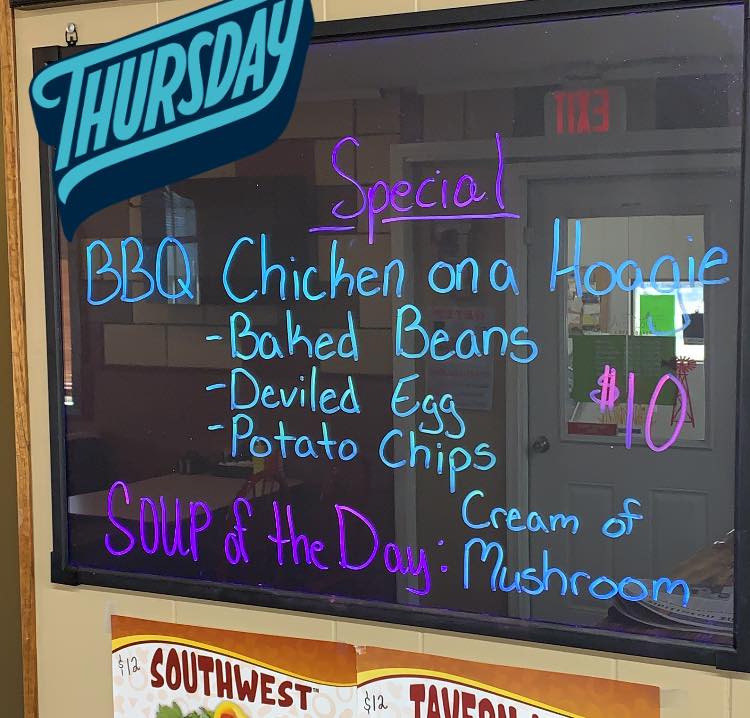 THURSDAY
EXIT
Special
BBQ Chicken on a Hoagie
-Baked Beans
-Deviled Egg
$10
-Potato Chips
Soup of the Day: Cream of
Mushroom
$12 SOUTHWEST™
$12 TAVERN